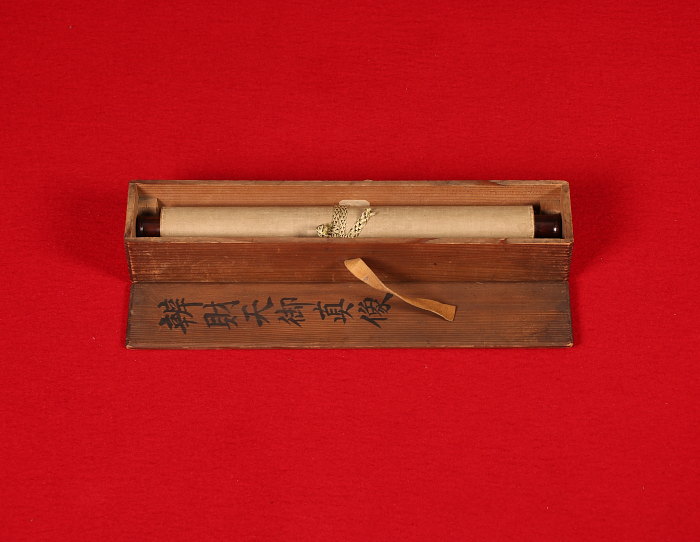 辨財天御真像